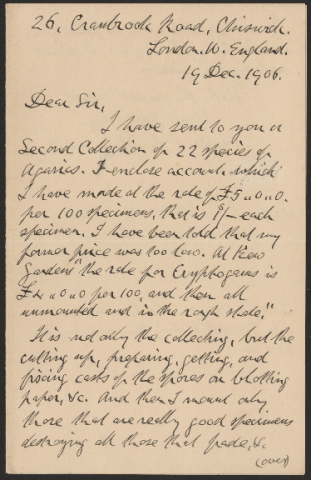 26, Cranbrook Road, Chiswick.
London. W. England.
19 Dec. 1906.
Dear Sir,
I have sent to you a
Second Collection of 22 species of
Agarics. I enclose account which
I have made at the rate of £5 „ 0 „ 0.
per 100 specimens, that is 1/- each
specimen. I have been told that my
former price was too low. At Kew
Gardens "the rate for Cryptogams is
£4 „ 0 „ 0 per 100, and then all
unmounted and in the rough state."
It is not only the collecting, but the
cutting up, preparing, getting, and
fixing casts of the spores on blotting
paper, &c. And then I mount only
those that are really good specimens
destroying all those that fade, &c.
(over)